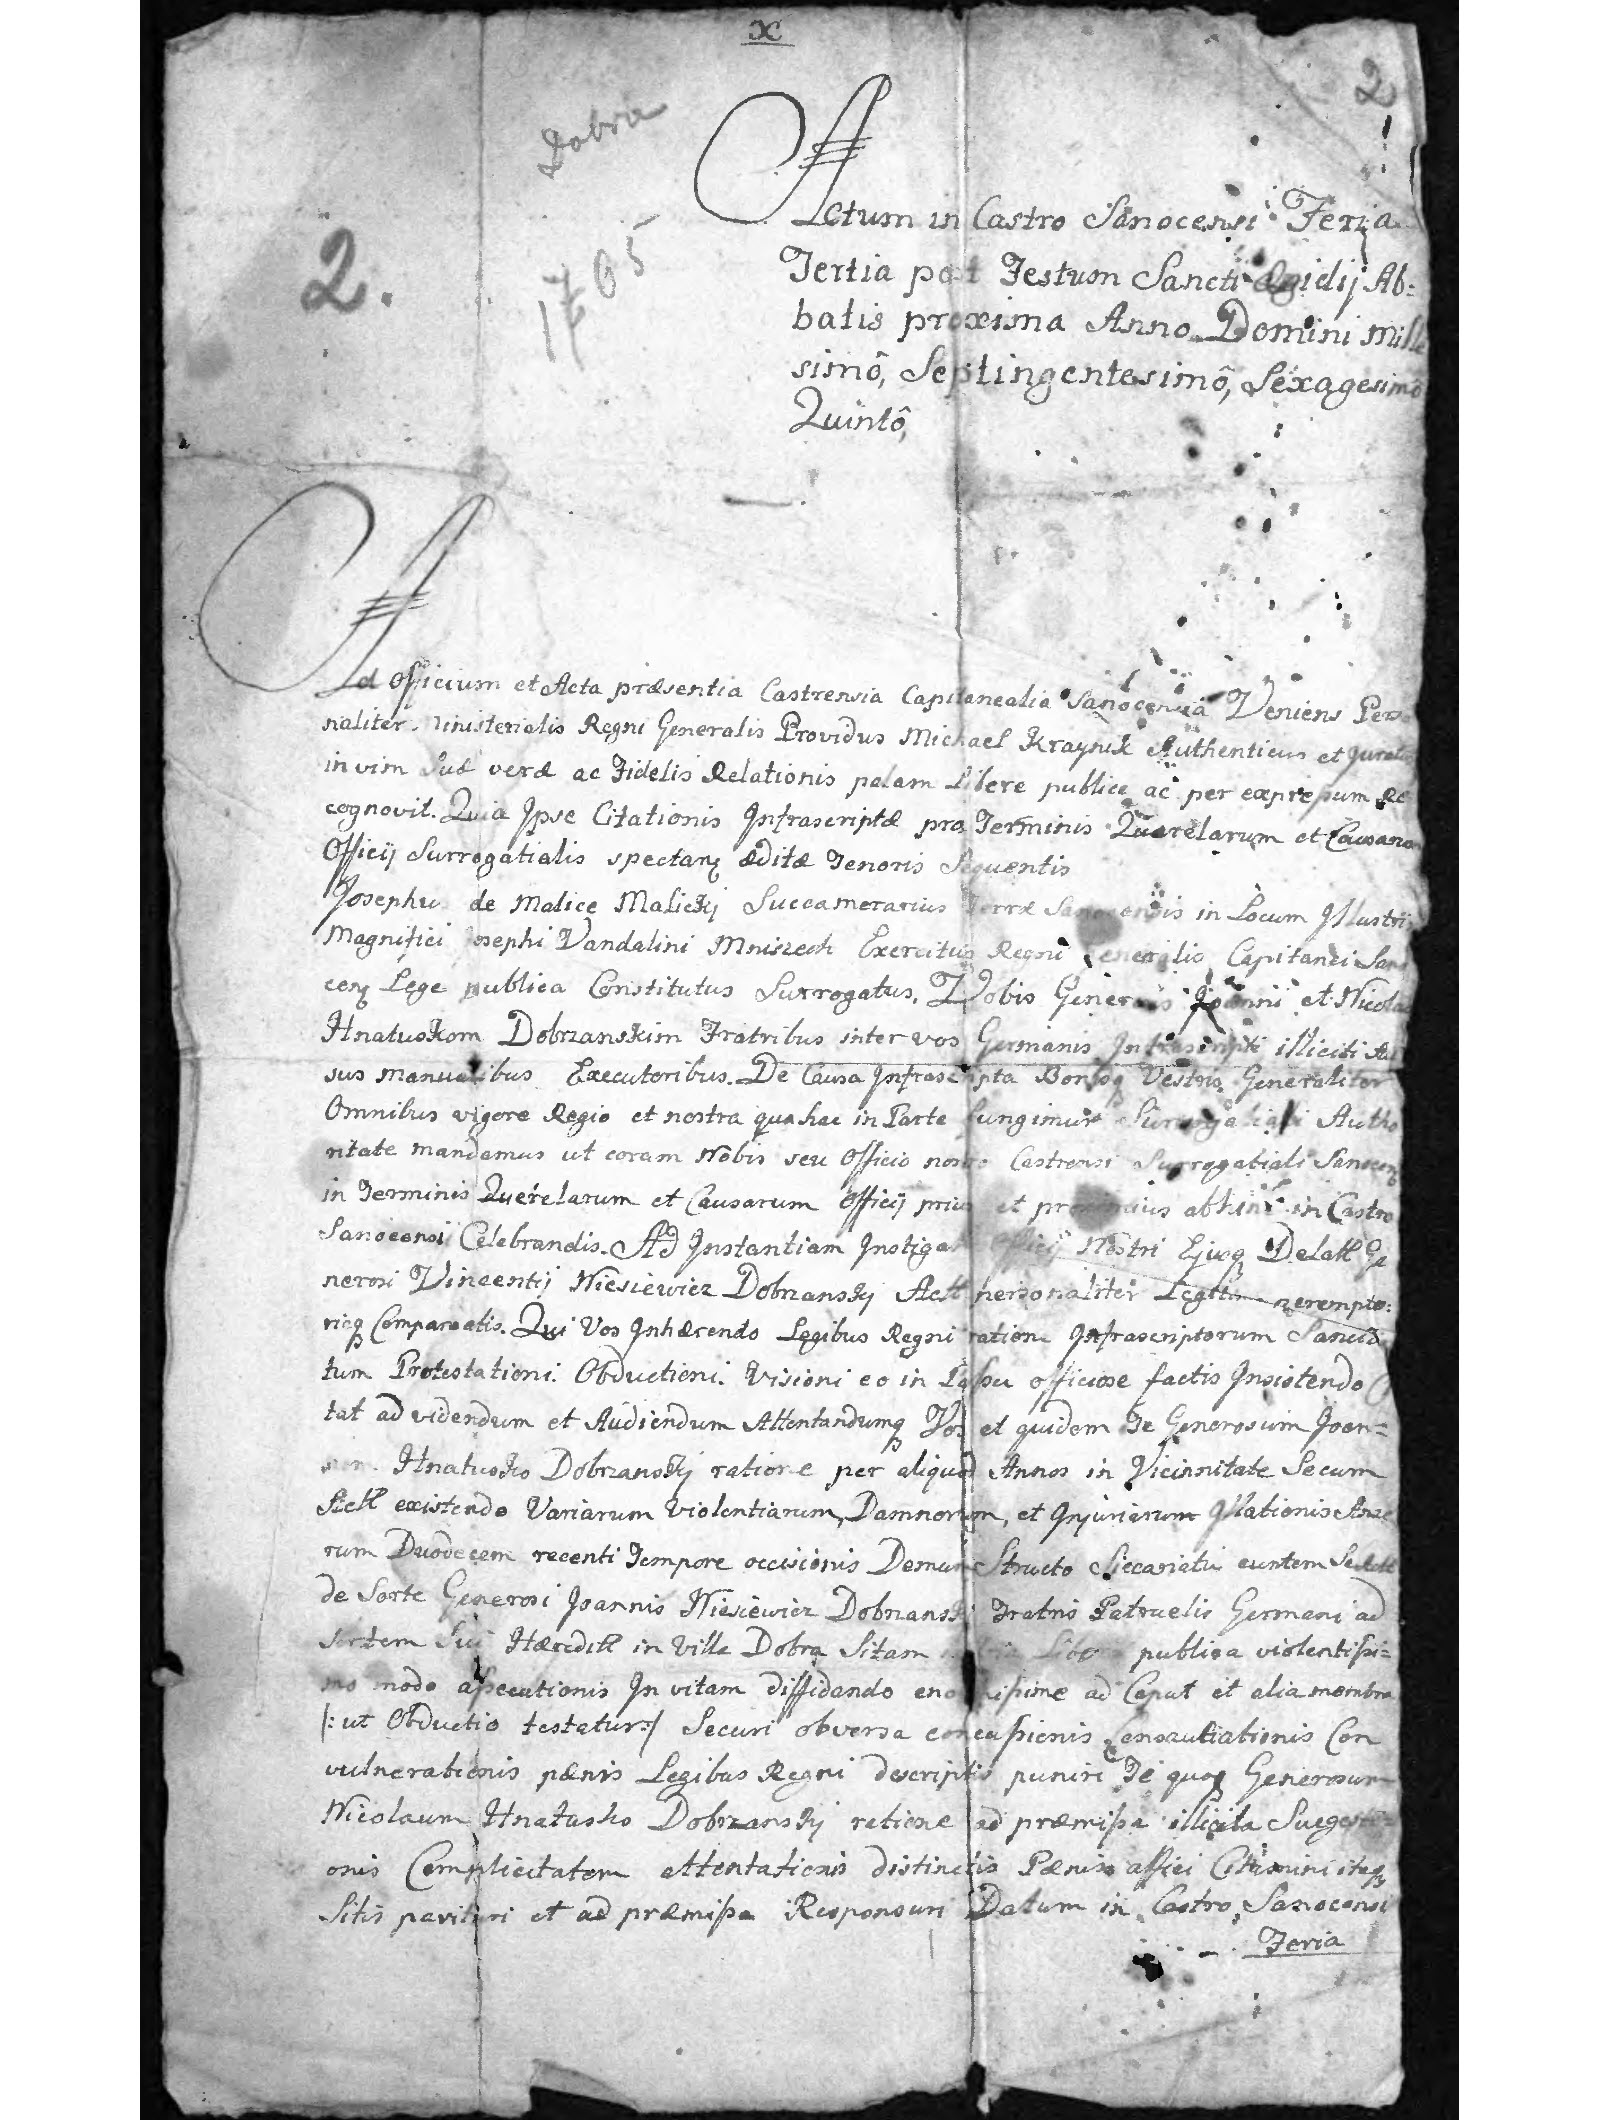 x
2
Dobra
1765
2.
Actum in Castro Sanocensi Feria
Tertia post Festum Sancti Egidij Ab=
batis proxima Anno Domini Mille
simô, Septingentesimô, Sexagesimô
Quintô,
Ad Officium et Acta præsentia Castrensia Capitanealia Sanocensia Veniens Perso
naliter Ministerialis Regni Generalis Providus Michael Kraynik Authenticus et Juratus
in vim Suæ veræ ac Fidelis Relationis palam Libere publice ac per expressum Re
cognovit. Quia Ipse Citationis Infrascriptæ pro Terminis Querelarum et Causarum
Officij Surrogatialis spectanẹ æditæ Tenoris Sequentis
Josephus de Malice Malickj Succamerarius Terræ Sanocensis in Locum Illustris
Magnifici Josephi Vandalini Mniszech Exercitus Regni Generalis Capitanei Sano
cenẹ Lege publica Constitutus Surrogatus. Vobis Generosis Joanni et Nicolao
Hnatuskom Dobrzanskim Fratribus inter vos Germanis Infrascripti illiciti Au
sus manualibus Executoribus. De Causa Infrascripta Bonisq Vestris Generaliter
Omnibus vigore Regio et nostra qua hac in Parte fungimur Surrogatiali Autho
ritate mandamus ut coram Nobis seu Officio nostro Castrensi Surrogatiali Sanocenẹ
in Terminis Querelarum et Causarum Officij prius et proximius abhinc in Castro
Sanocensi Celebrandis. Ad Instantiam Instigat Officij Nostri Ejusq Delatt Ge
nerosi Vincentij Niesiewicz Dobrzanskj Actt personaliter Legitime perempto:
rieq Compareatis. Qui Vos Inhærendo Legibus Regni ratione Infrascriptorum Sancitis
tum Protestationi. Obductioni. Visioni eo in Passu officiose factis Insistendo Ci
tat ad videndum et Audiendum Attentandumq Vos et quidem Te Generosum Joan=
nem Hnatusko Dobrzanskj ratione per aliquod Annos in Vicinnitate Secum
Actt existendo Variarum Violentiarum, Damnorum, et Injuriarum Illationis Anse
rum Duodecem recenti Tempore occisionis Demum Structo Siccariatu euntem Se Actt
de Sorte Generosi Joannis Niesiewicz Dobrzanskj Fratris Patruelis Germani ad
Sortem Sui Hæreditt in Villa Dobra Sitam via Libera publica violentissi=
mo modo assecutionis In vitam diffidando enormissime ad Caput et alia membra
/: ut Obductio testatur :/ Securi obversa concussionis Censautiationis Con
vulnerationis pænis Legibus Regni descriptis puniri Te quoq Generosum
Nicolaum Hnatusko Dobrzanskj ratione ad præmissa illicita Sugesti
onis Complicitatem attentationis distinctis Pænis affici Citamini itaq
Sitis parituri et ad præmissa Responsuri Datum in Castro Sanocensi
Feria